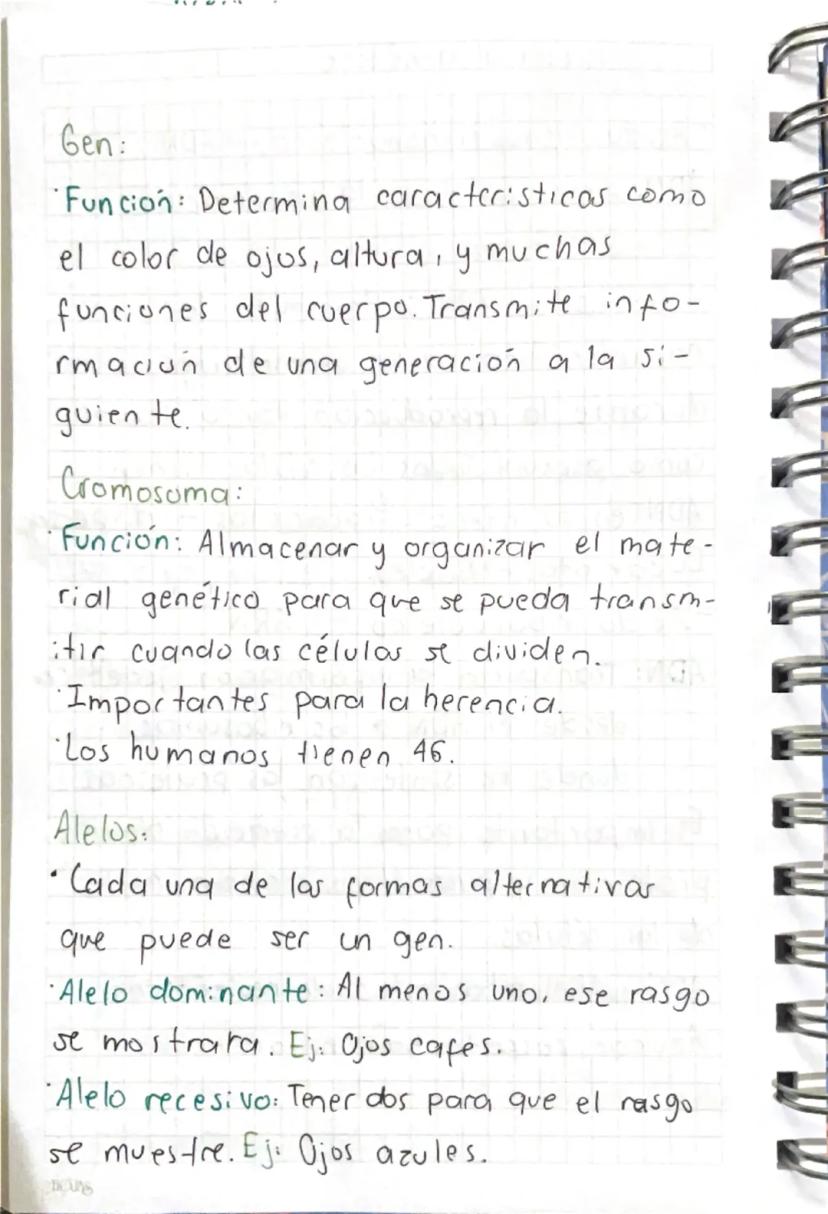 Gen:
·Función: Determina características como
el color de ojos, altura, y muchas
funciones del cuerpo. Transmite info-
rmación de una generación a la si-
guiente.
Cromosoma:
·Función: Almacenar y organizar el mate-
rial genético para que se pueda transm-
itir cuando las células se dividen.
·Importantes para la herencia.
·Los humanos tienen 46.
Alelos:
·Cada una de las formas alternativas
que puede ser un gen.
·Alelo dominante: Al menos uno, ese rasgo
se mostrara. Ej: Ojos cafes.
·Alelo recesivo: Tener dos para que el rasgo
se muestre. Ej: Ojos azules.